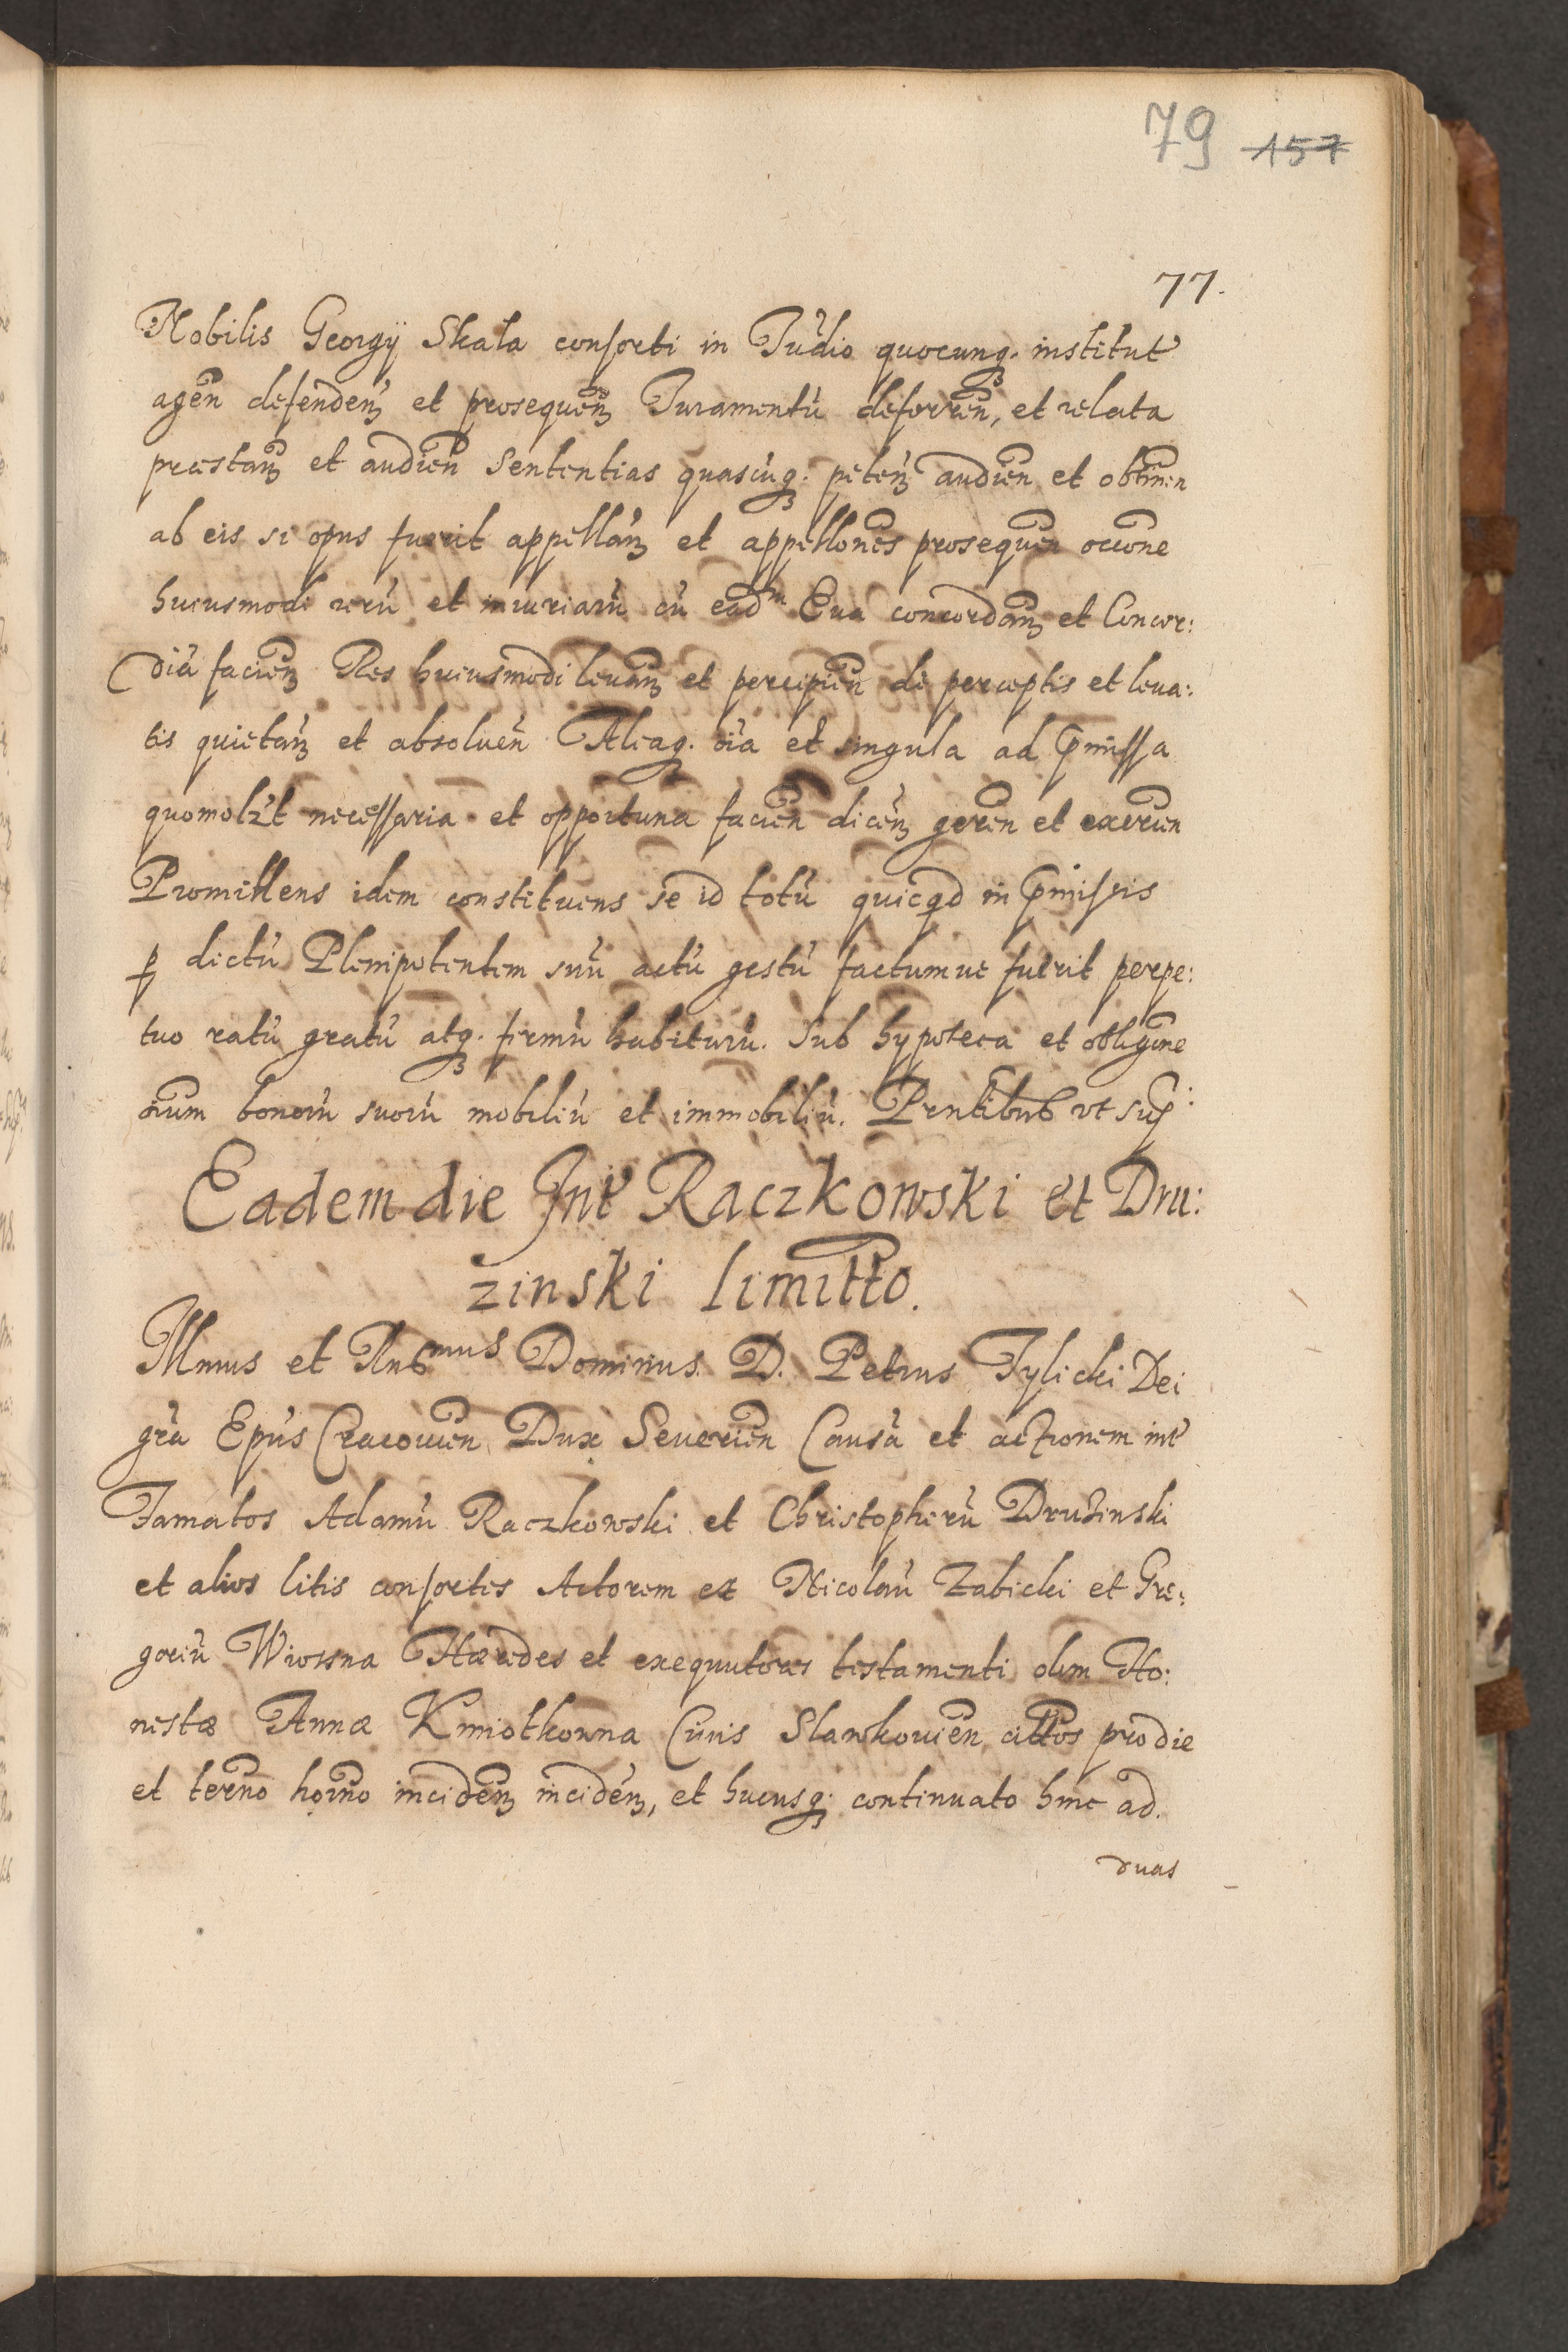 79 157
77.
Nobilis Georgÿ Skala consorti in Iudio quocunq. institut
agen̄ defenden̄ et prosequen̄ Iuramentū deferren̄, et relata
praestan̄ et audien̄ Sententias quascūq. peten̄ audien̄ et obtinen
ab eis si opus fuerit appellan̄ et appellones prosequen̄ occone
huiusmodi rerū et iniuriarū cū eadm Eua concordan̄ et Concor:
diā facien̄ Res huiusmodi leuan̄ et percipien̄ de perceptis et leua:
tis quietan̄ et absoluen̄ Aliaq. oīa et singula ad p̄missa
quomolzt necessaria et opportuna facien̄ dicen̄ geren̄ et exercen
Promittens idem constituens se id totū quicqd in p̄missis
p dictū Plenipotentem suū actū gestū factumue fuerit perpe:
tuo ratū gratū atq. firmū habiturū. Sub hypoteca et obligōne
oīum bonorū suorū mobiliū et immobiliū. Pn̄tibus vt sup̄:
Eadem die Int Raczkowski et Dru:
zinski limitto.
Illmus et Rndmus Dominus D. Petrus Tylicki Dei
gr̄a Ep̄us Cracouien̄ Dux Seuerien̄ Causā et actionem int
Famatos Adamū Raczkowski et Christopherū Druzinski
et alios litis consortes Actorem ex Nicolaū Zabicki et Gre:
goriū Wiossna Haeredes et exequutores testamenti olim Ho:
nestæ Annæ Kmiotkowna Ciuis Slawkouien̄ cittos pro die
et termo hoīno inciden̄ inciden̄, et hucusq. continuato hinc ad.
duas